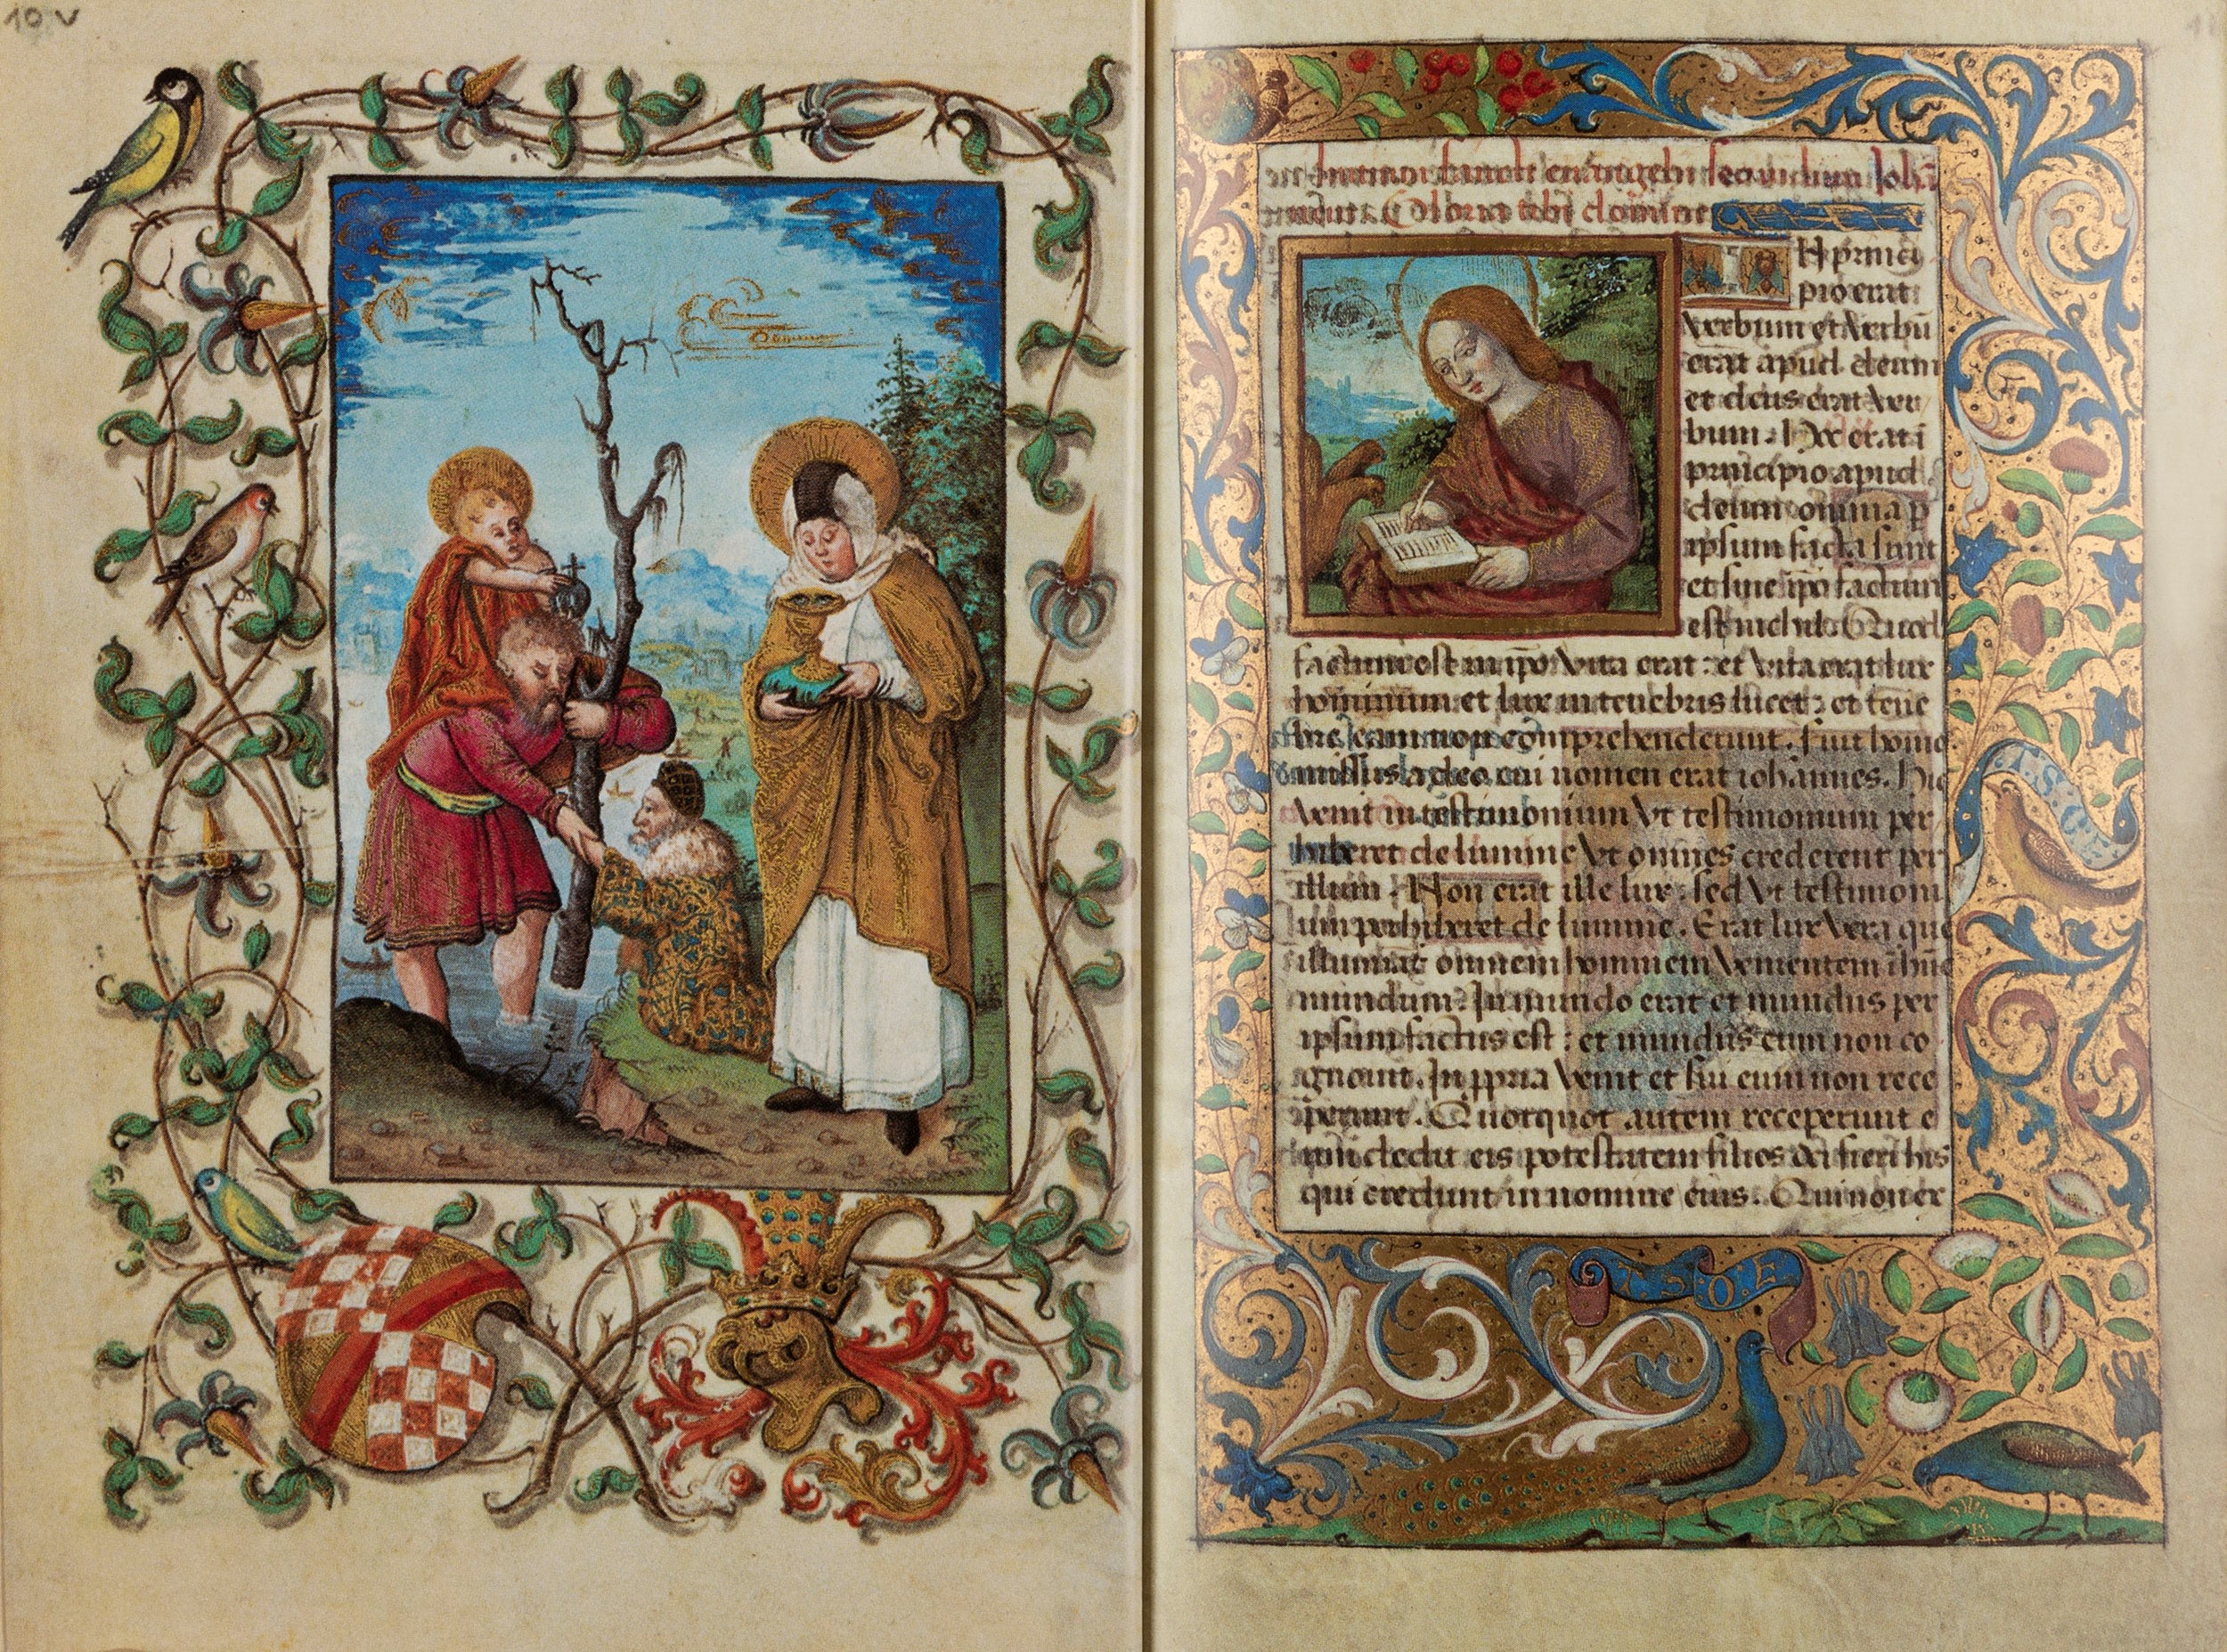 10 v
Inicium sancti euangelii secundum Johā
Gloria tibi domine
N princi
pio erat
verbum et verbū
erat apud deum
et deus erat ver
bum. Hoc erat i
principio apud
deum omnia p
ipsum facta sunt
et sine ipo factum
est nichil. Quod
factum est in ipo vita erat : et vita erat lux
hominum et lux in tenebris lucet : et tene
bre eam non comprehenderunt. Fuit homo
missus a deo cui nomen erat iohannes. Hic
venit in testimonium vt testimonium per
hiberet de lumine vt omnes crederent per
illum. Non erat ille lux : sed vt testimoni
um perhiberet de lumine. Erat lux vera que
illuminat omnem hominem venientem ī hūc
mundum. In mundo erat et mundus per
ipsum factus est : et mundus eum non co
gnouit. In ppria venit et sui eum non rece
perunt. Quotquot autem receperunt e
um dedit eis potestatem filios dei fieri his
qui credunt in nomine eius. Qui non ex
T. S. O. E.